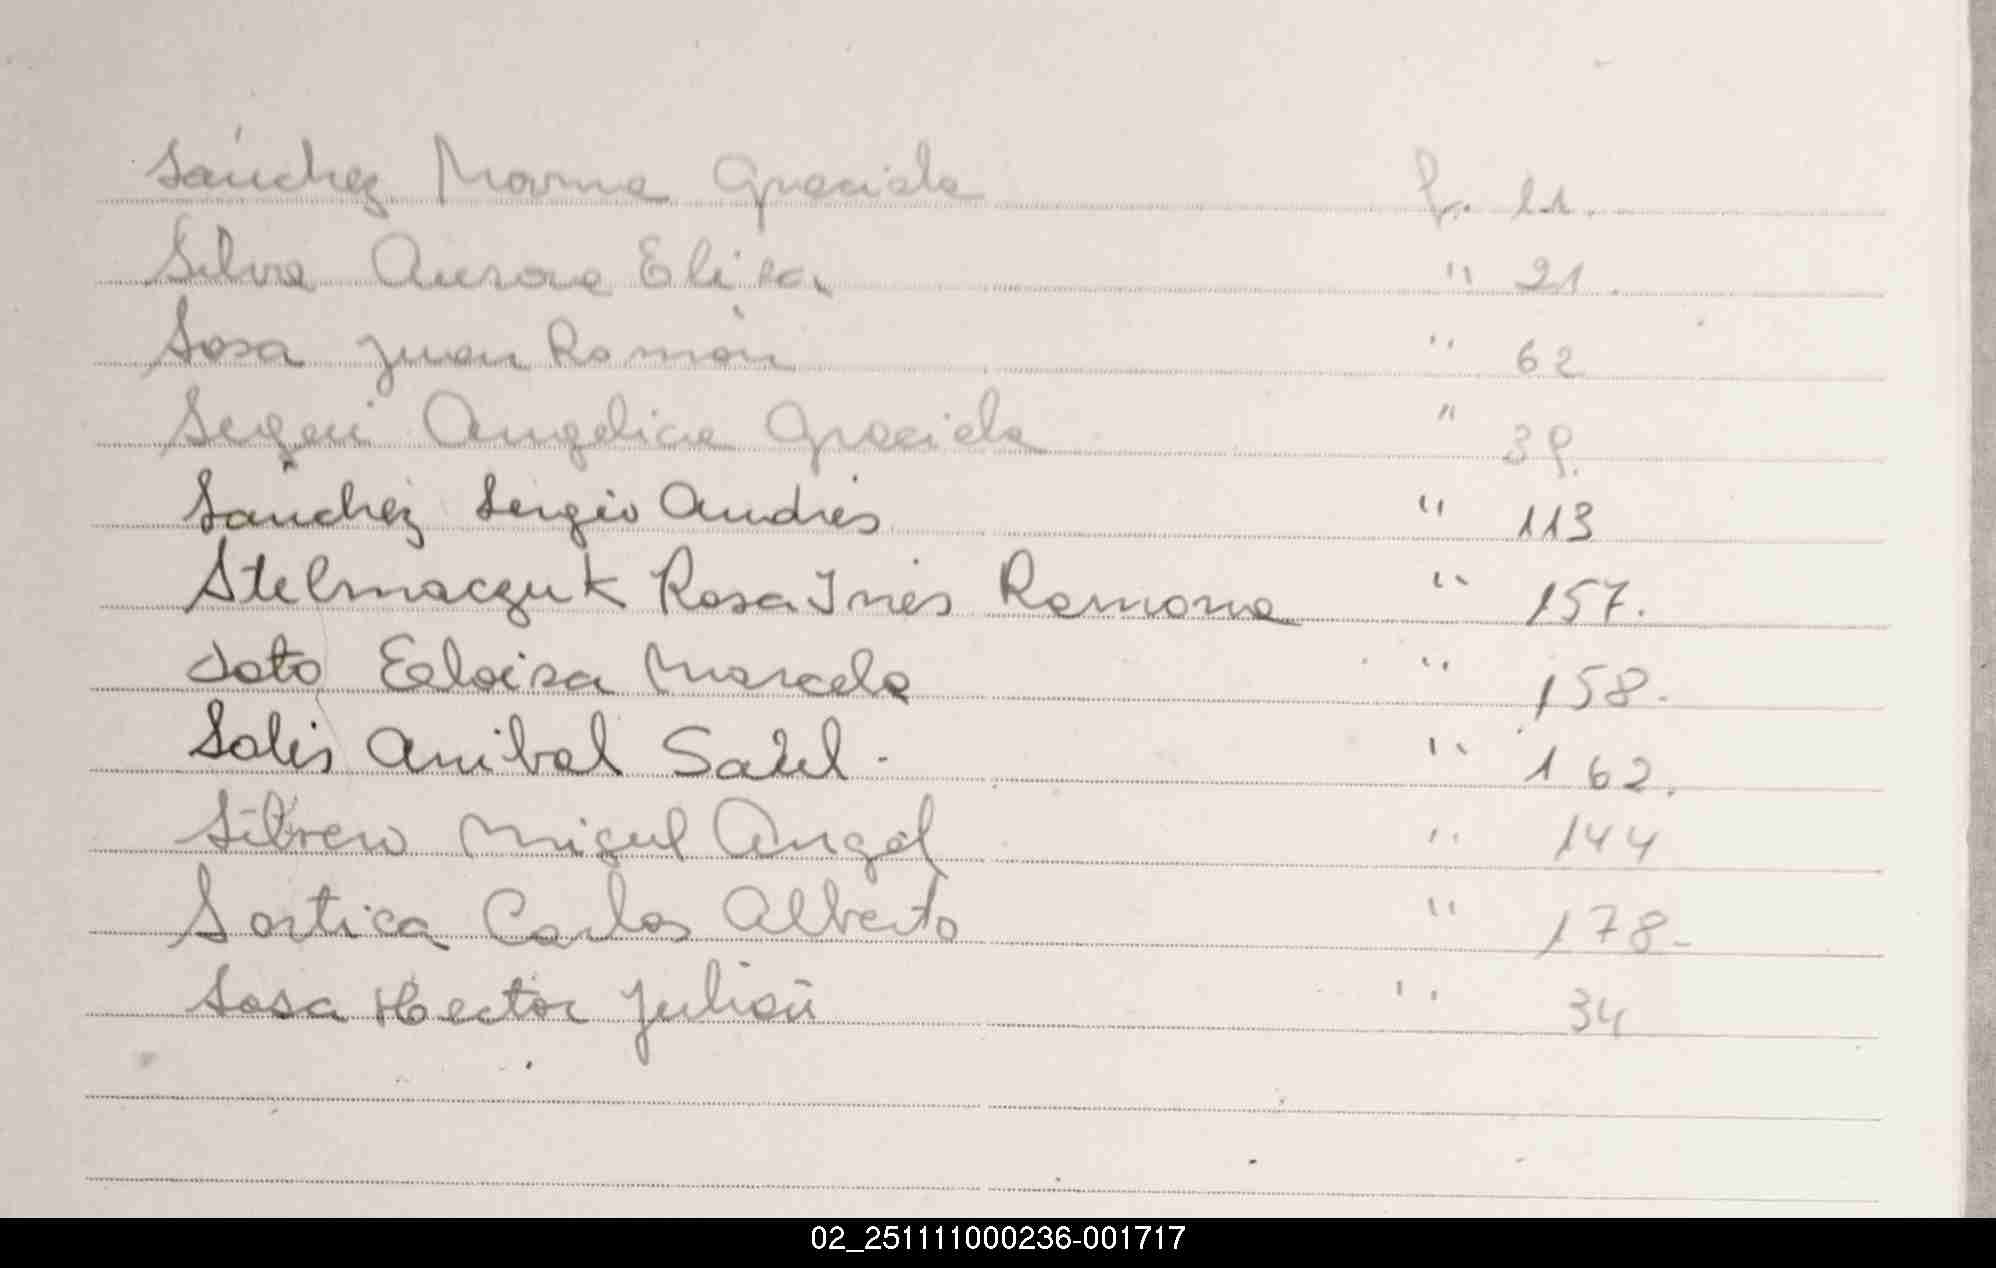 Sánchez Morna Graciela f. 11.
Silva Aurora Elisa " 21.
Sosa Juan Ramón " 62
Segeri Angelica Graciela " 39.
Sánchez Sergio Andrés " 113
Stelmaczuk Rosa Inés Ramona " 157.
Soto Eloisa Marcela " 158.-
Solis Anibal Saúl. " 162.
Silvero Miguel Angel " 144
Sortica Carlos Alberto " 178-
Sosa Hector Julián " 34
02_251111000236-001717